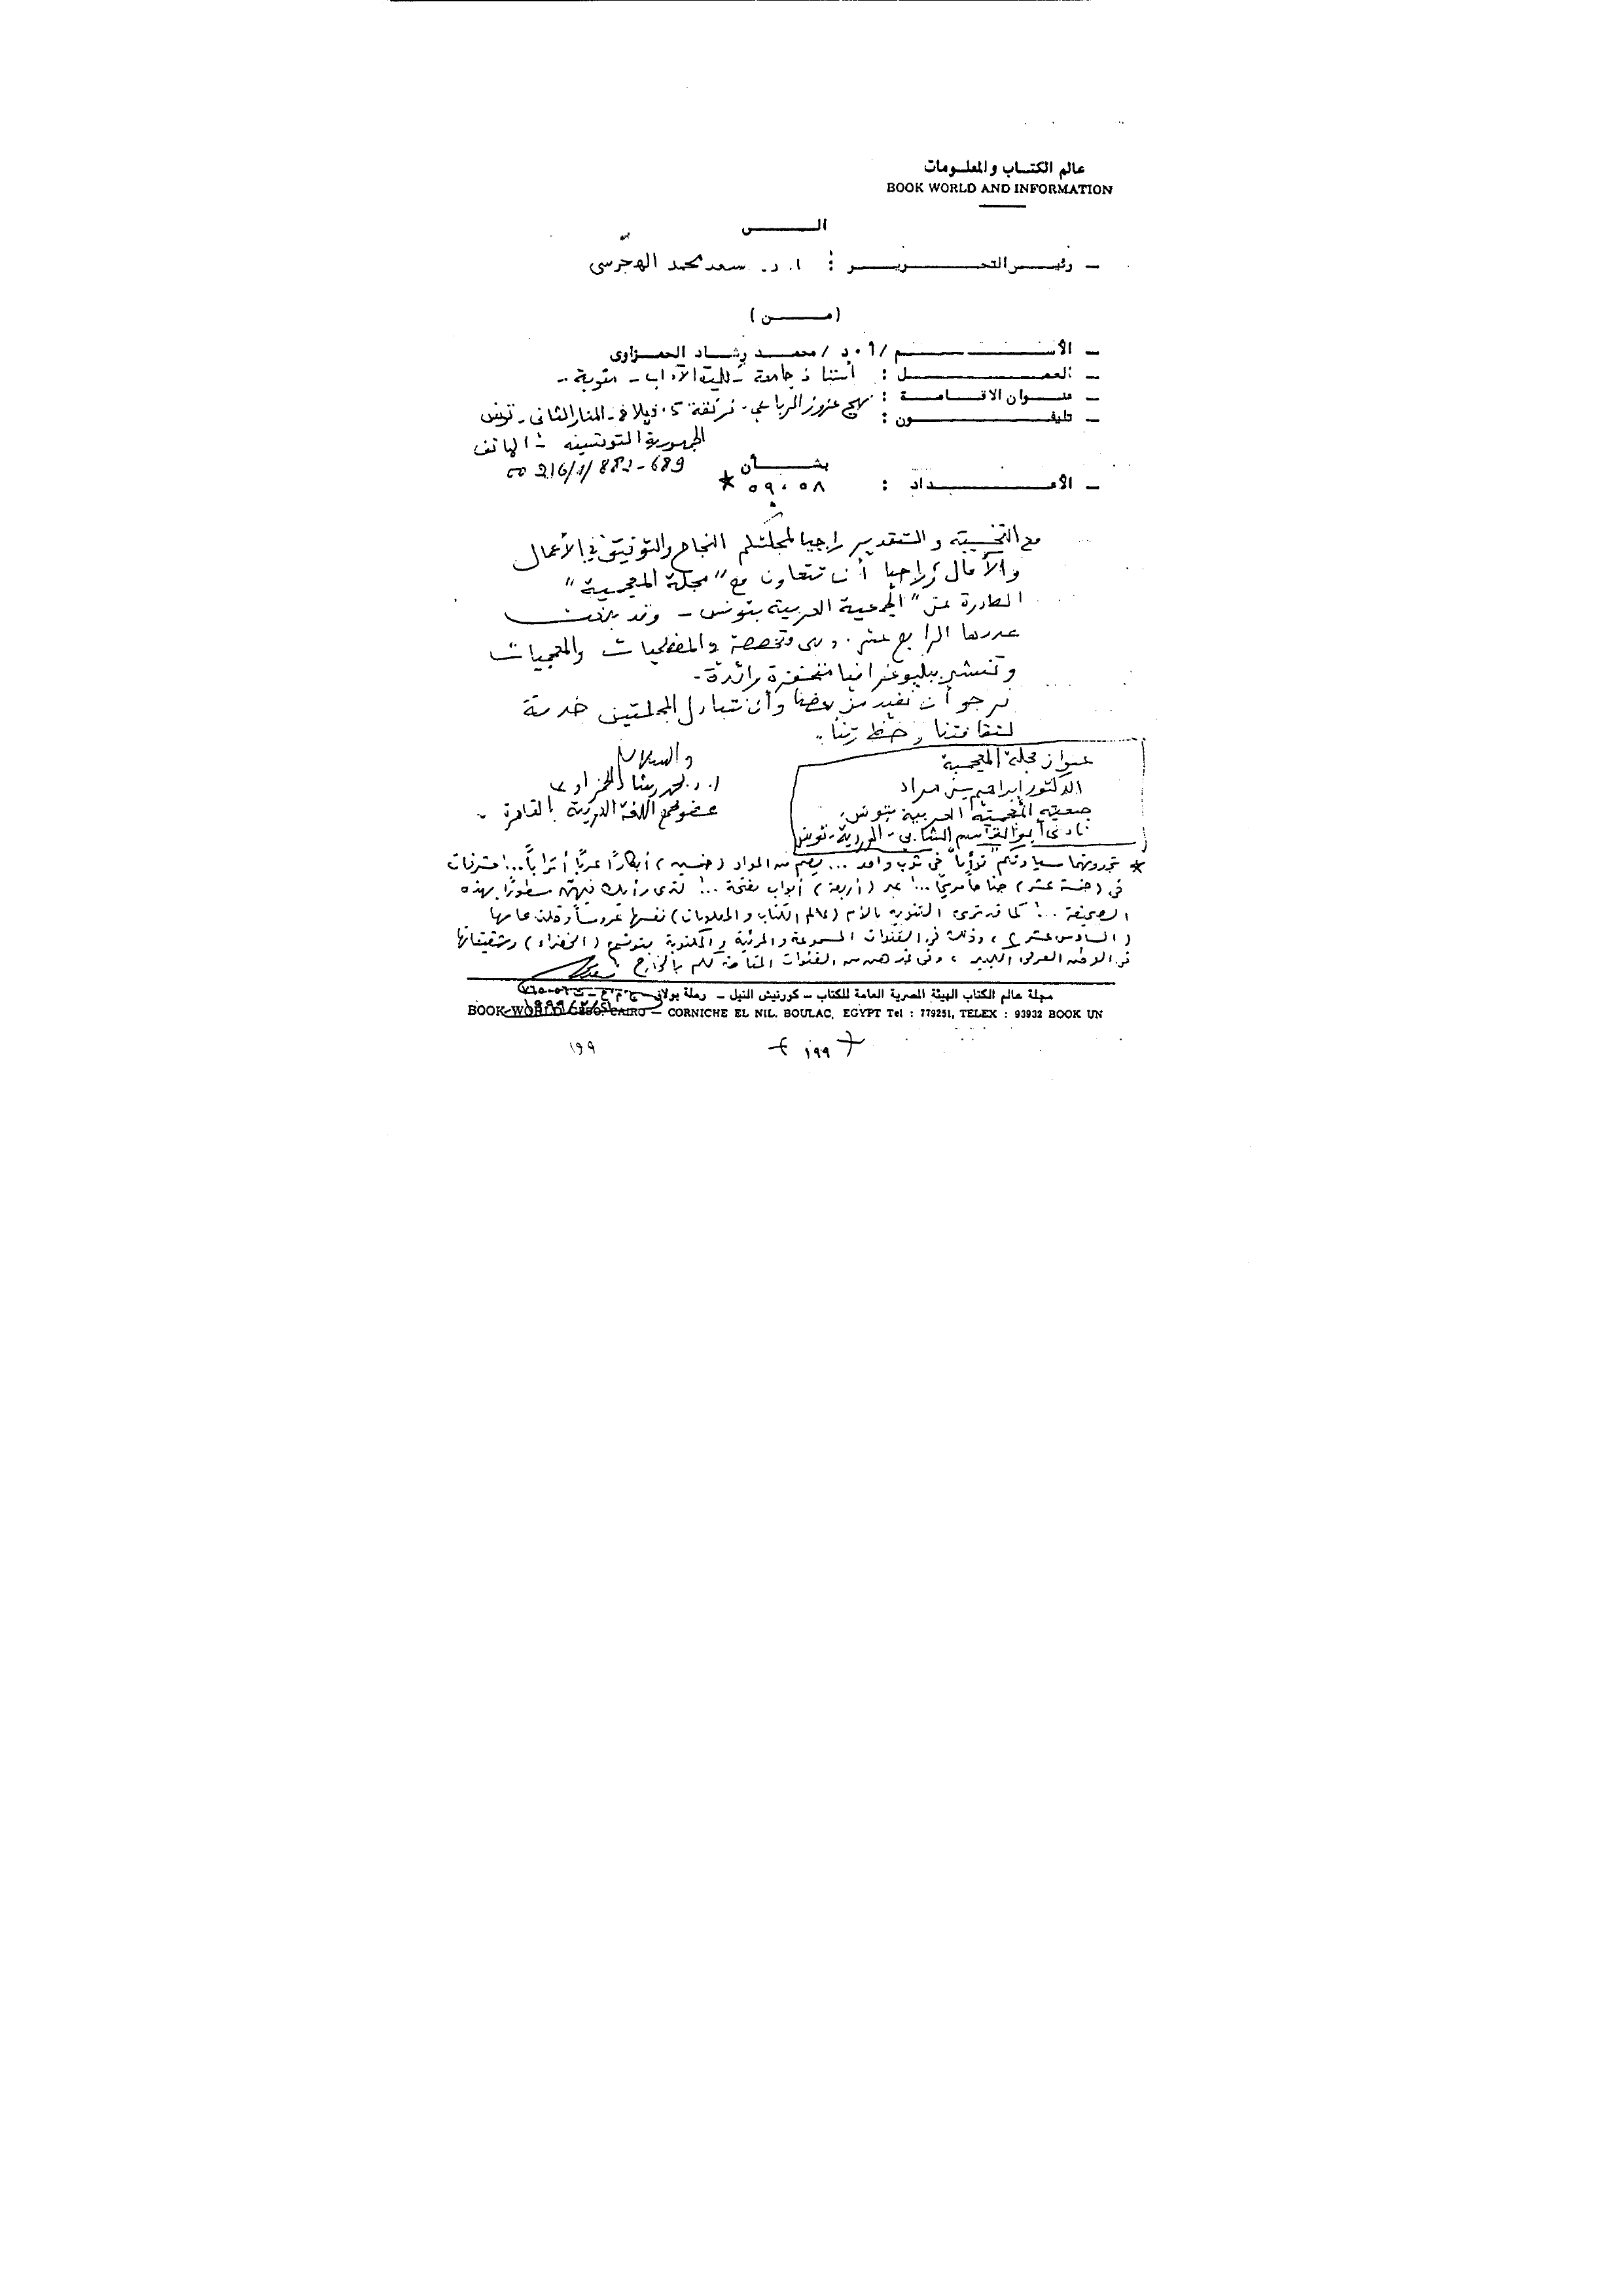 عالم الكتاب والمعلومات
BOOK WORLD AND INFORMATION
الى
ـ رئيس التحرير : ا. د. سعد محمد الهجرسى
( من )
ـ الاسم / ا٠د / محمد رشاد الحمزاوى
ـ العمل : أستاذ جامعة ـ كلية الآداب ـ منوبة ..
ـ عنوان الاقامة : نهج عزوز الرباعي ـ فيلا ـ المنار الثاني ـ تونس
ـ تليفون :
الجمهورية التونسية ـ الهاتف
00 216/1/882-689
بشأن
ـ الأعداد : ٥٩،٥٨ *
مع التحية والتقدير راجيا لمجلتكم النجاح والتوفيق في الأعمال
والآمال وراجيا أن تتعاون مع "مجلة المعجمية"
الصادرة عن "الجمعية العربية بتونس ـ وقد بلغت
عددها الرابع عشر. وهى متخصصة والمعجميات
وتنشر ببليوغرافيا رائدة ـ
نرجو أن نفيد من بعضنا وأن نتبادل المجلتين خدمة
لثقافتنا
والسلام
ا. د. محمد رشاد الحمزاوي
عضو مجمع اللغة العربية بالقاهرة ـ
عنوان مجلة المعجمية
الدكتور إبراهيم بن مراد
جمعية المعجمية العربية بتونس.
نادى أبو القاسم الشابي ـ الوردية ـ تونس
* تجدونهما سيادتكم "توأماً" فى ثوب واحد ... يضم من المواد (خمسين) أبكارًا عربًا أترابًا ..!
فى (خمسة عشر) جناحًا ..! عبر (أربعة) أبواب مفتحة ..! لترى رأيك فيهن مسطورًا بهذه
الصحيفة ..! كما قد ترى التنويه بالأم (عالم الكتاب والمعلومات) نفسها عروسًا
(السادس عشر)، وذلك فى القنوات المسموعة والمرئية والمكتوبة بتونس (الخضراء) وشقيقاتها
فى الوطن العربى الكبير، وفى غيرهن من القنوات المتاحة لكم بالخارج
مجلة عالم الكتاب الهيئة المصرية العامة للكتاب ـ كورنيش النيل ـ رملة بولاق ـ ج م ع ـ
BOOK WORLD GEBO. CAIRO — CORNICHE EL NIL. BOULAC, EGYPT Tel : 779251, TELEX : 93932 BOOK UN
١٩٩
١٩٩